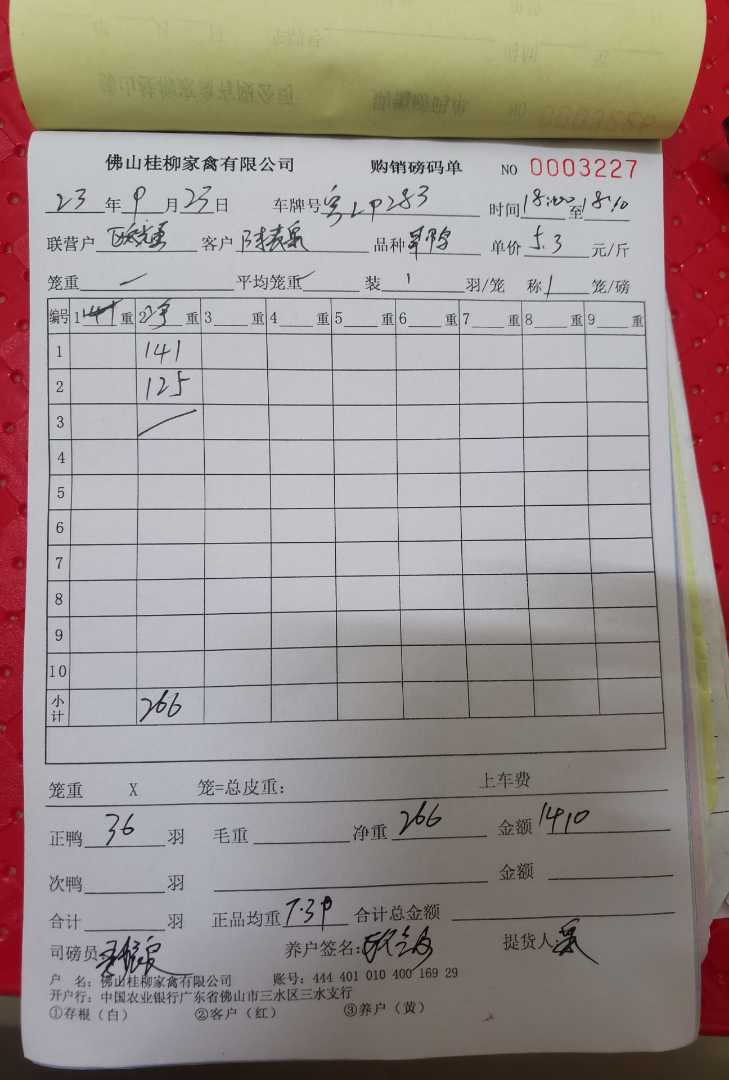 佛山桂柳家禽有限公司 购销磅码单 NO 0003227
23年9月23日 车牌号粤L 283 时间18:00至18:10
联营户 客户 品种 单价5.3元/斤
笼重 平均笼重 装1羽/笼 称1笼/磅
编号 1 重 2净重 3 重 4 重 5 重 6 重 7 重 8 重 9 重
1 141
2 125
3
4
5
6
7
8
9
10
小计 266
笼重 X 笼=总皮重: 上车费
正鸭36羽 毛重 净重266 金额1410
次鸭 羽 金额
合计 羽 正品均重7.39 合计总金额
司磅员: 养户签名: 提货人:
户 名: 佛山桂柳家禽有限公司 账号: 444 401 010 400 169 29
开户行: 中国农业银行广东省佛山市三水区三水支行
①存根(白) ②客户(红) ③养户(黄)